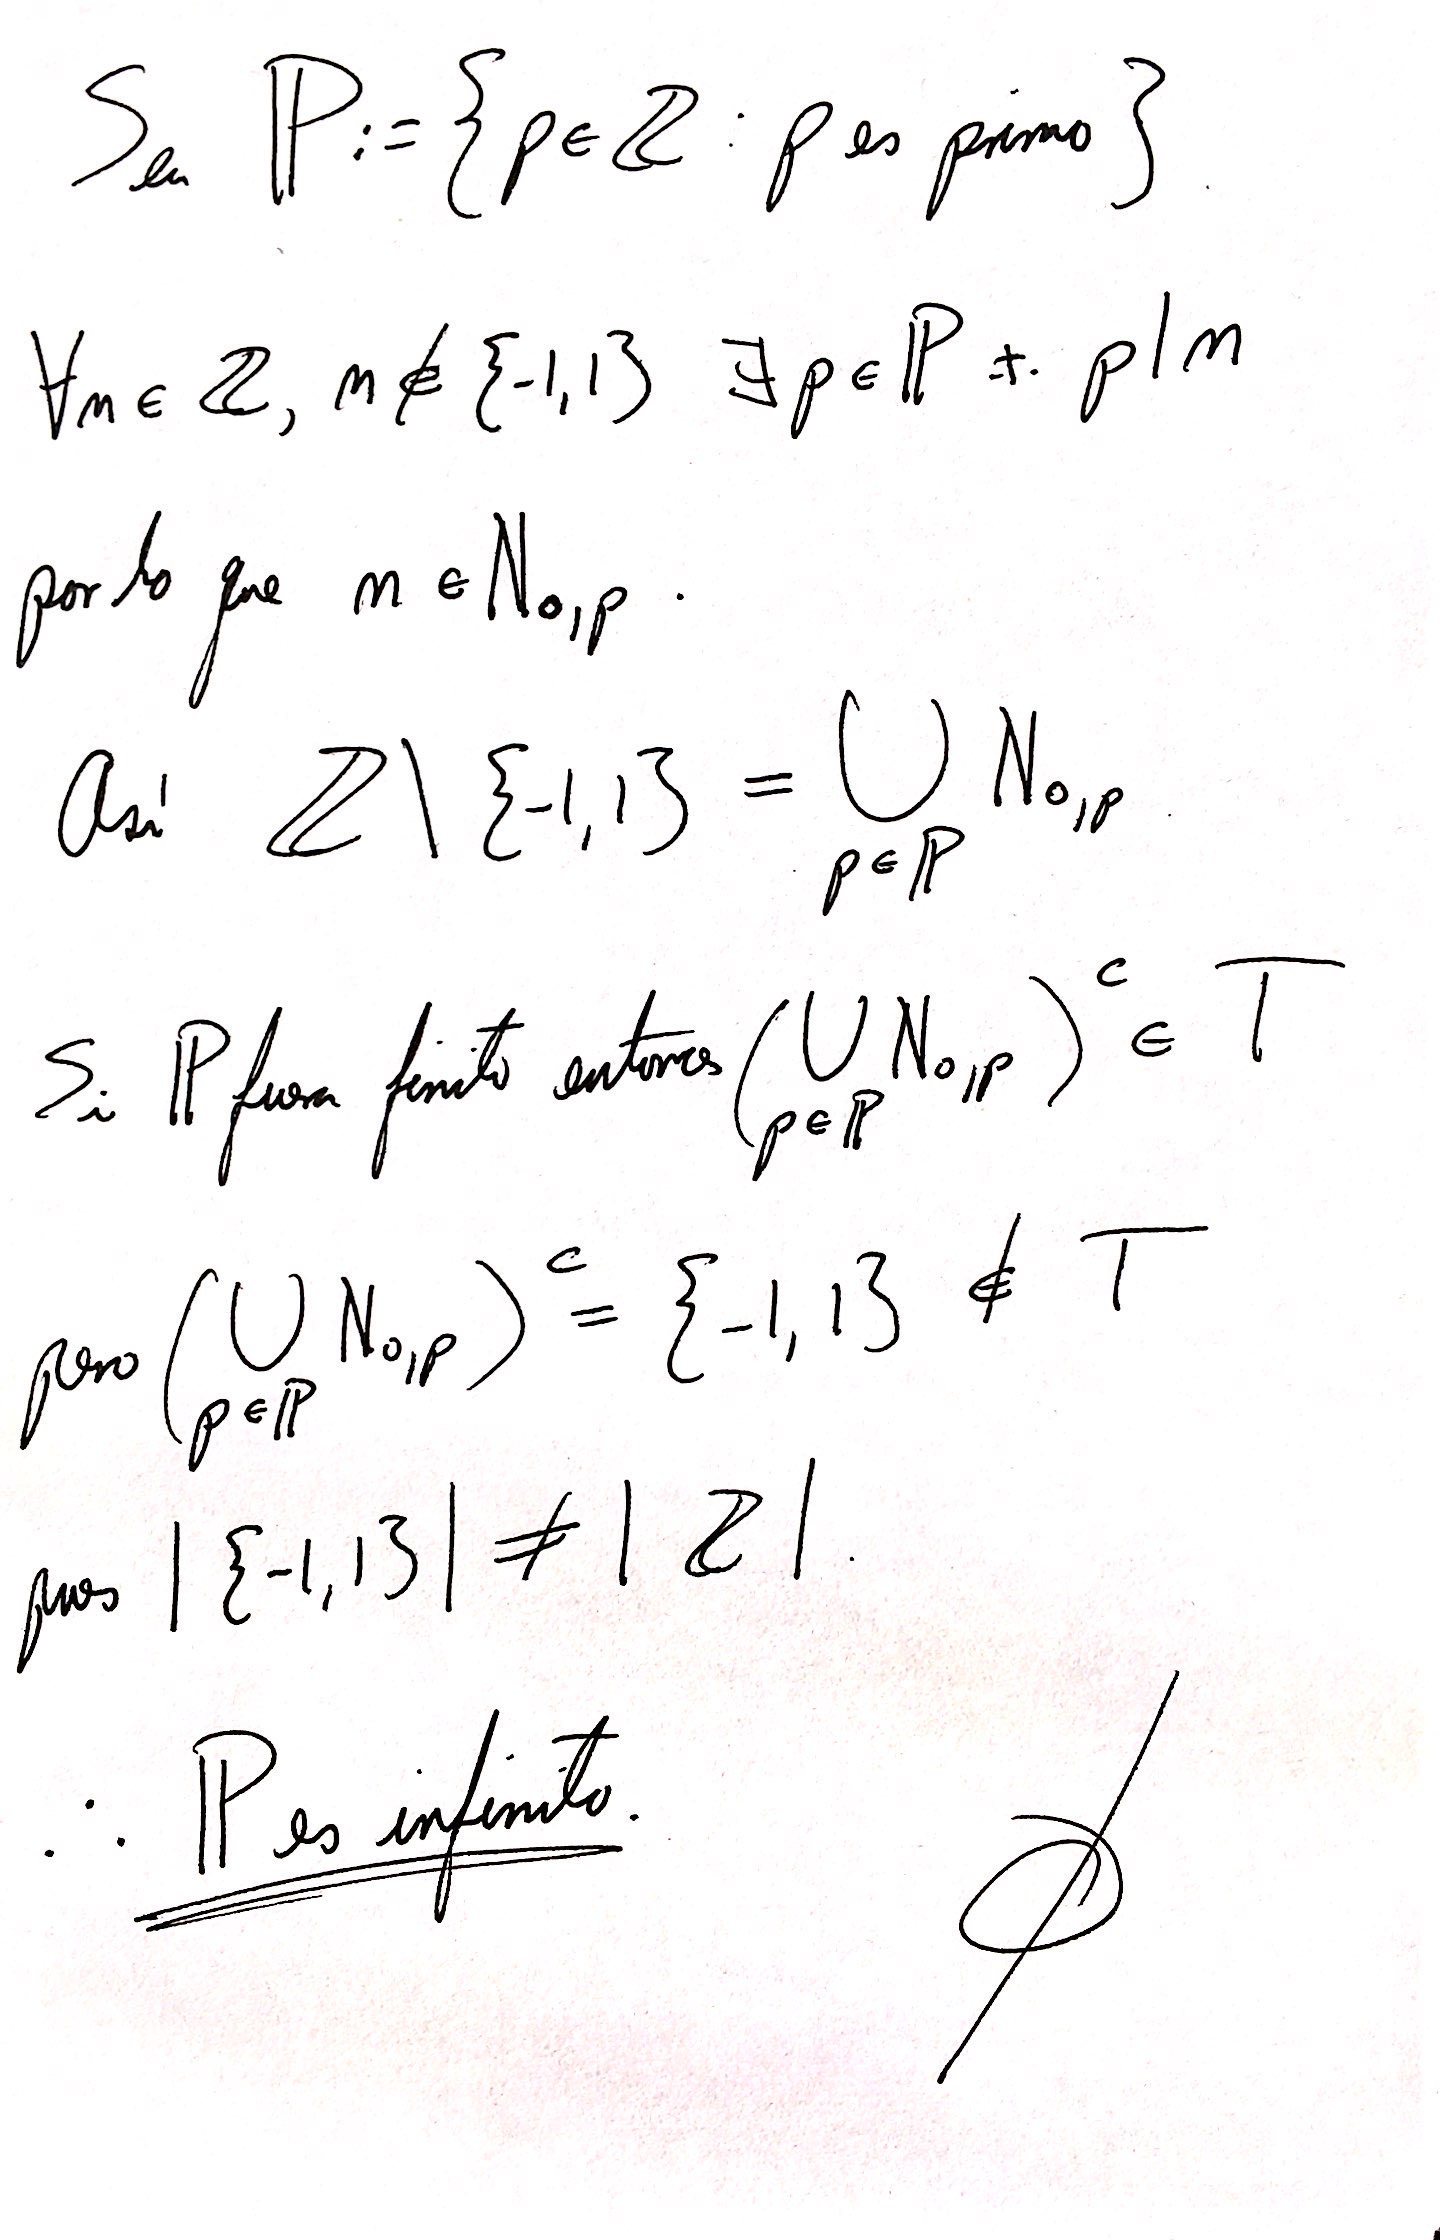 Sea ℙ := {p ∈ ℤ : p es primo}
∀n ∈ ℤ, n ∉ {-1,1} ∃ p ∈ ℙ t. p|n
por lo que n ∈ N₀,ₚ.
Así ℤ \ {-1,1} = ⋃_{p∈ℙ} N₀,ₚ
Si ℙ fuera finito entonces (⋃_{p∈ℙ} N₀,ₚ)ᶜ ∈ T
pero (⋃_{p∈ℙ} N₀,ₚ)ᶜ = {-1,1} ∉ T
pues |{-1,1}| ≠ |ℤ|.
∴ ℙ es infinito.